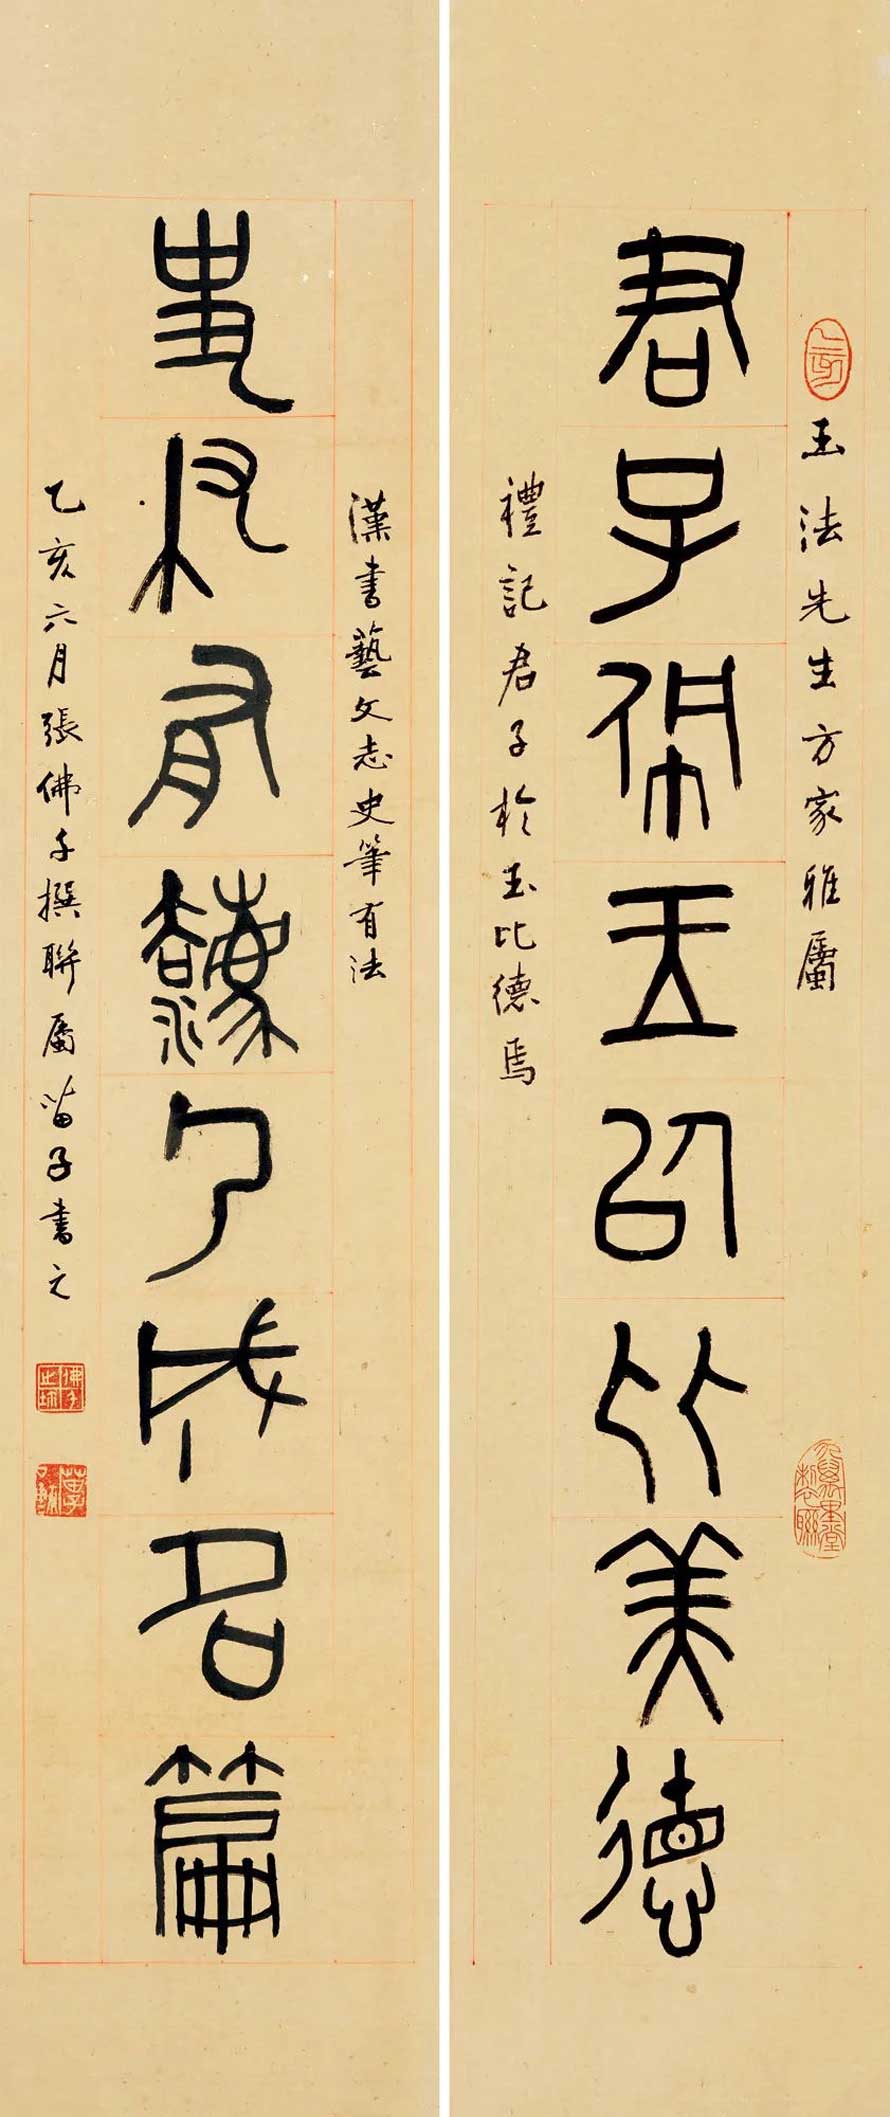 玉法先生方家雅屬
君子佩玉以比美德
禮記君子於玉比德焉
漢書藝文志史筆有法
史聿有灋乃成名篇
乙亥六月張佛千撰聯屬苗子書之